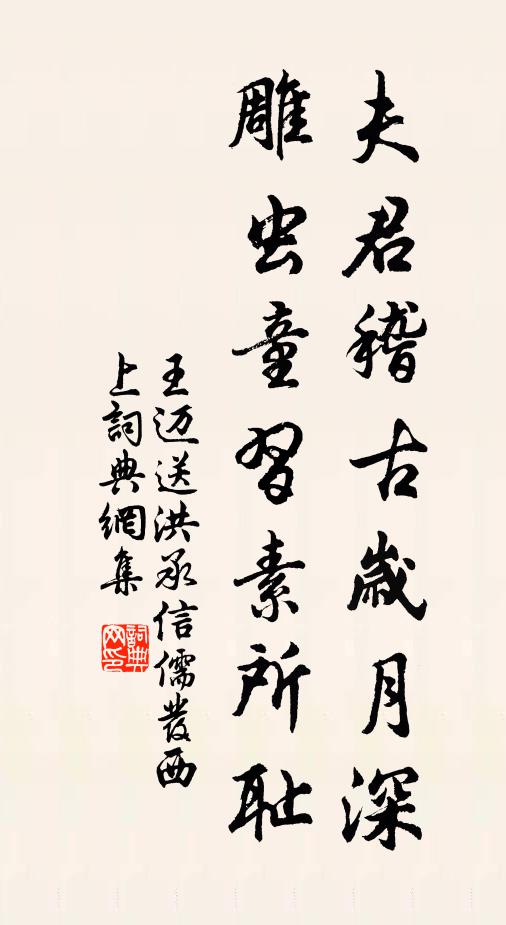 夫君稽古歲月深
雕虫童習素所耻
王迈送洪承信儒發西
上詞典網集
詞典網印